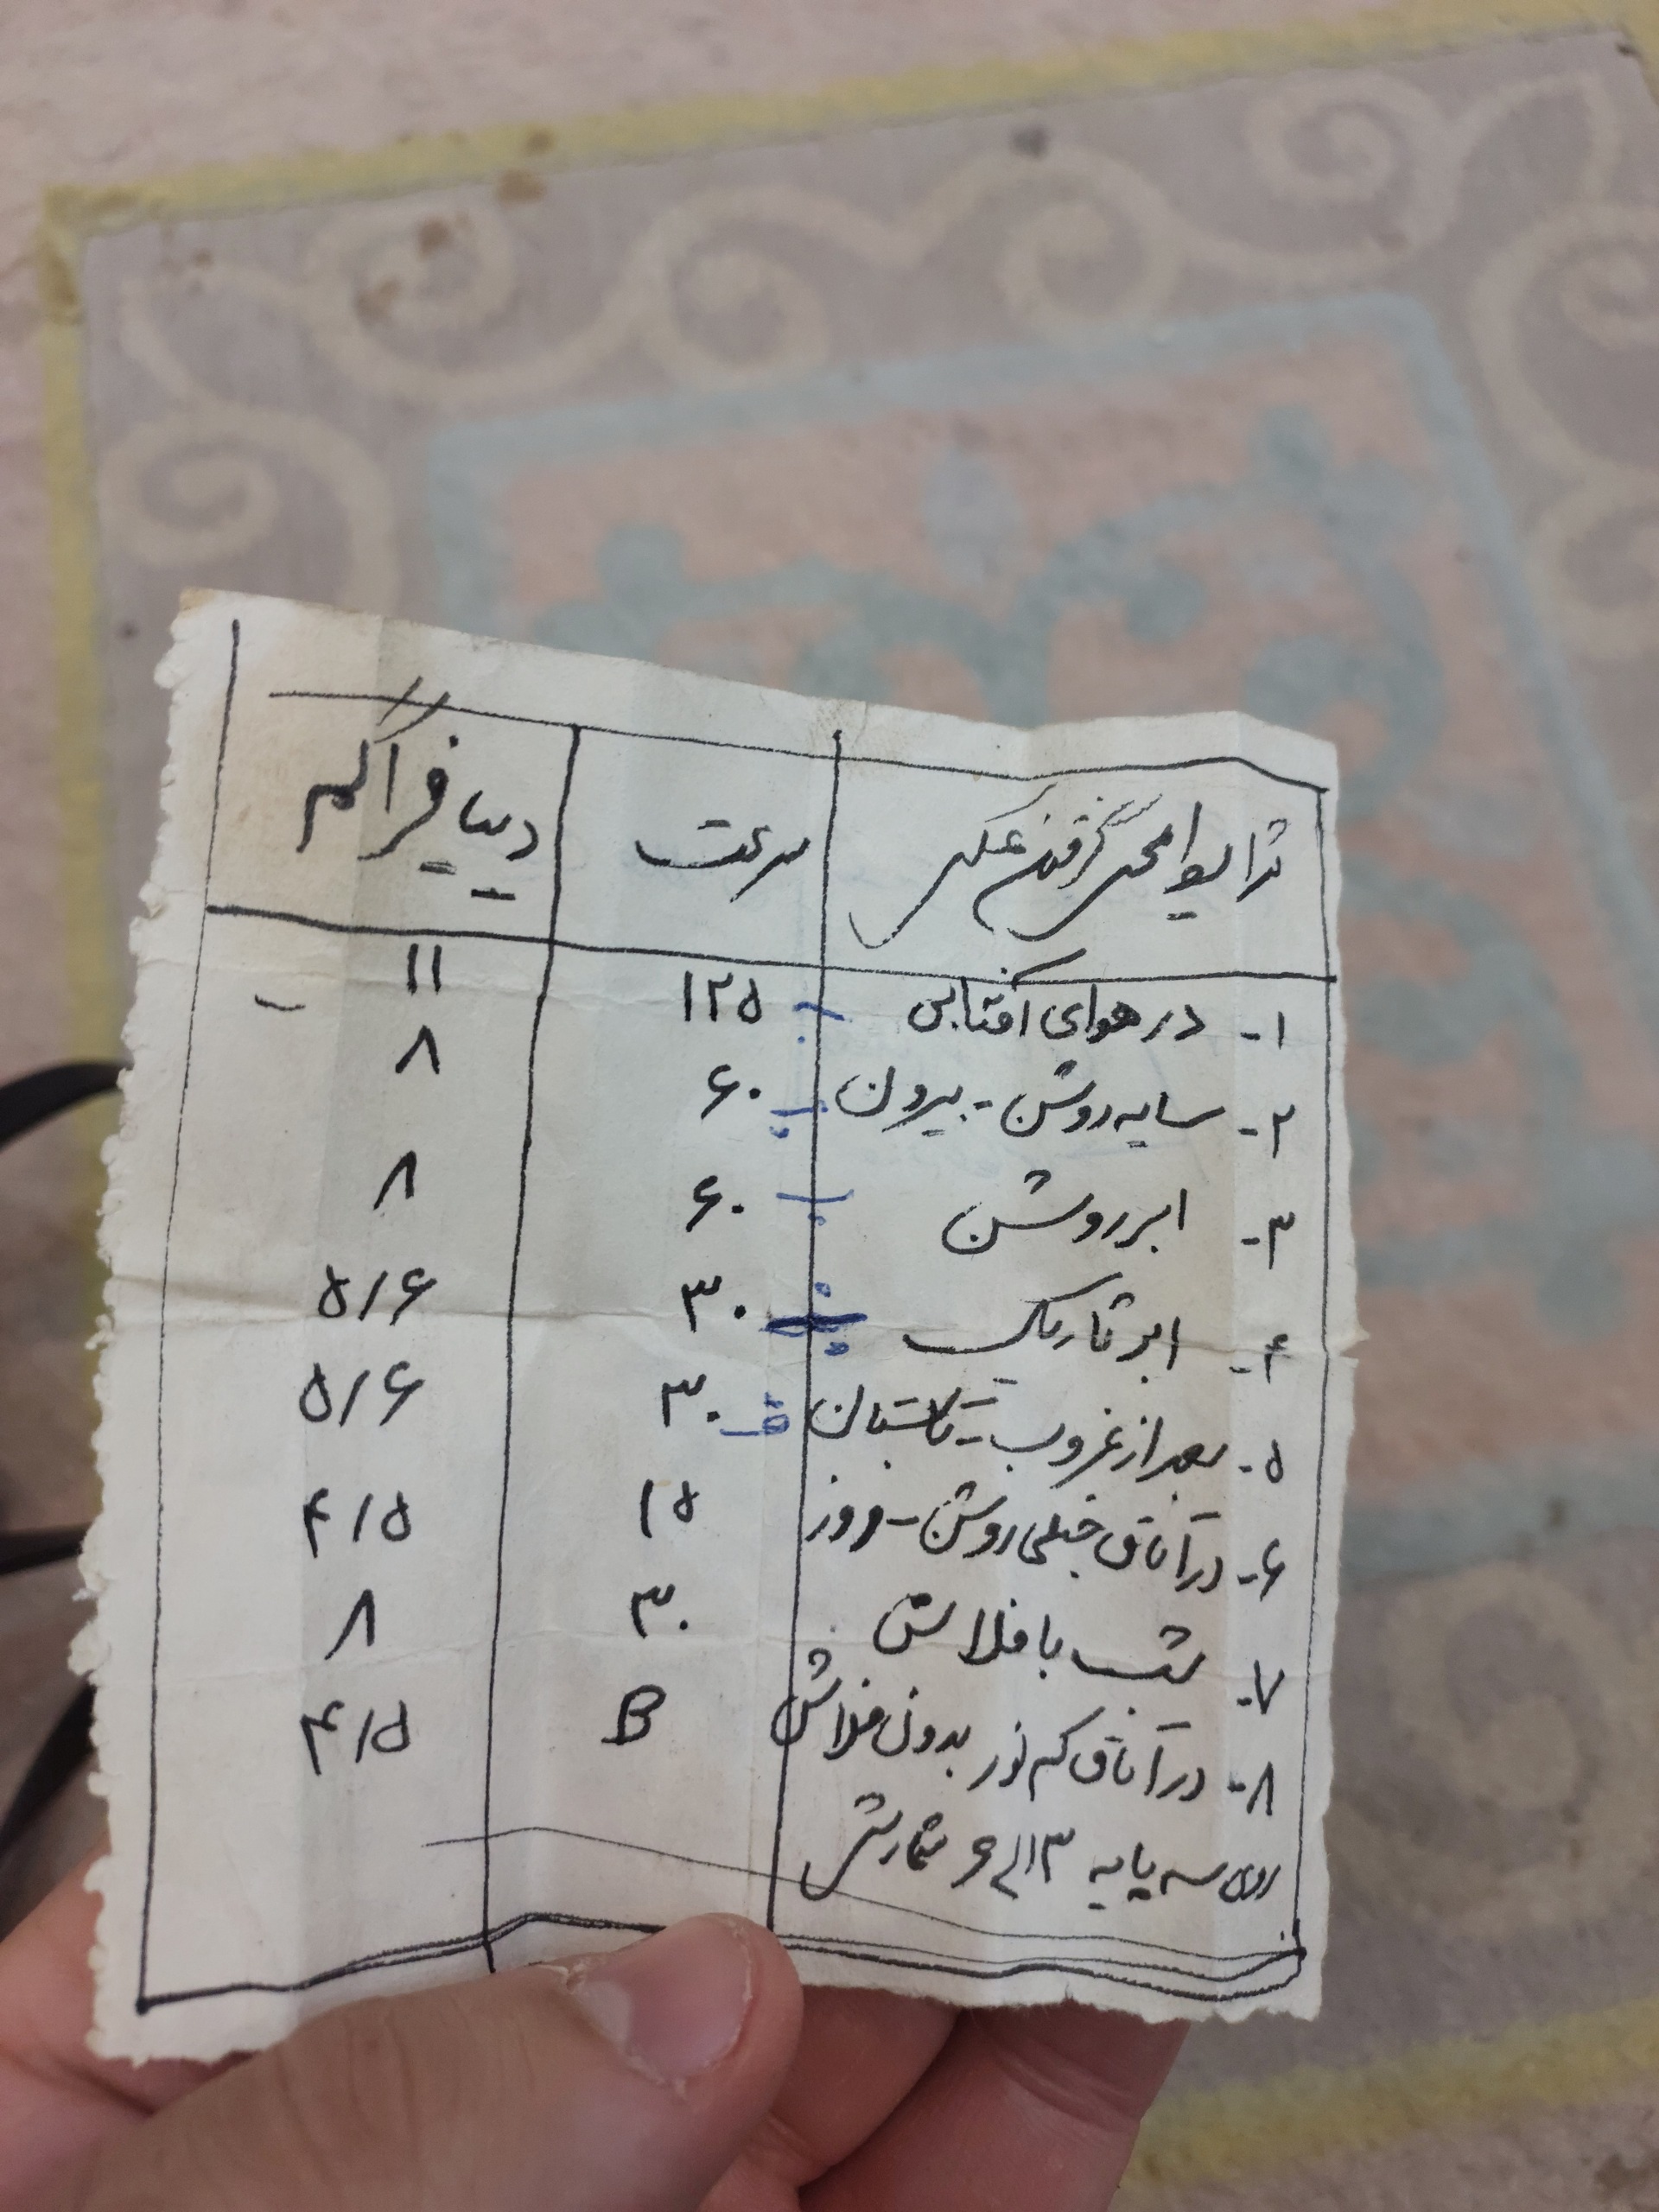 شرایط محل گرفتن عکس سرعت دیافراگم
۱- در هوای آفتابی ۱۲۵ ۱۱
۲- سایه روشن - بیرون ۶۰ ۸
۳- ابر روشن ۶۰ ۸
۴- ابر تاریک ۳۰ ۵/۶
۵- بعد از غروب - تابستان ۳۰ ۵/۶
۶- در اتاق خیلی روشن - روز ۱۵ ۴/۵
۷- شب با فلاش ۳۰ ۸
۸- در اتاق کم نور بدون فلاش B ۴/۵
روی سه پایه ۳ الی ۶ شمارش